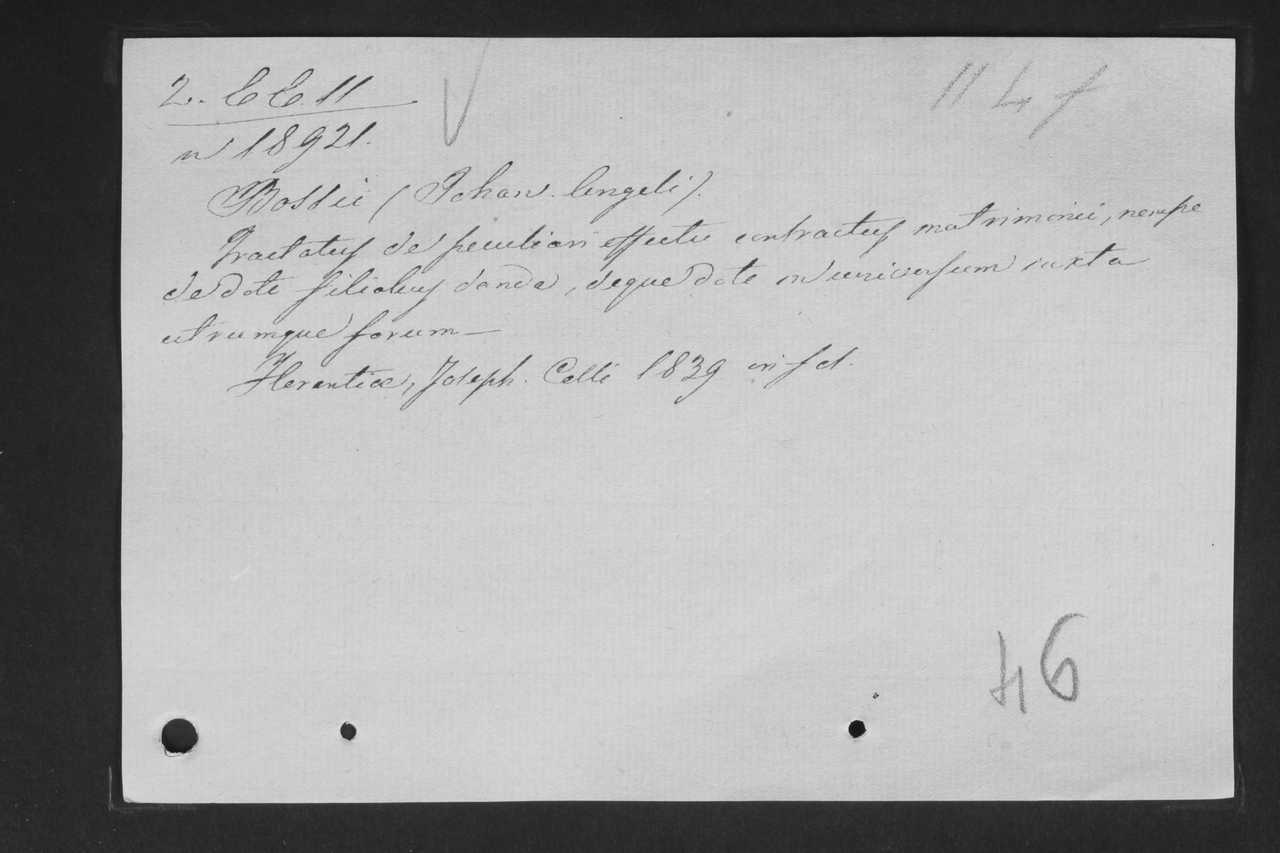 2. C C. 11
n 18921.
11 4 f
Bossii (Johan. Angeli).
Tractatus de peculiari effectu contractus matrimonii, nempe
de dote filiabus danda, deque dote in universum iuxta
utrumque forum—
Florentiæ, Joseph. Celli 1839 in fol.
46